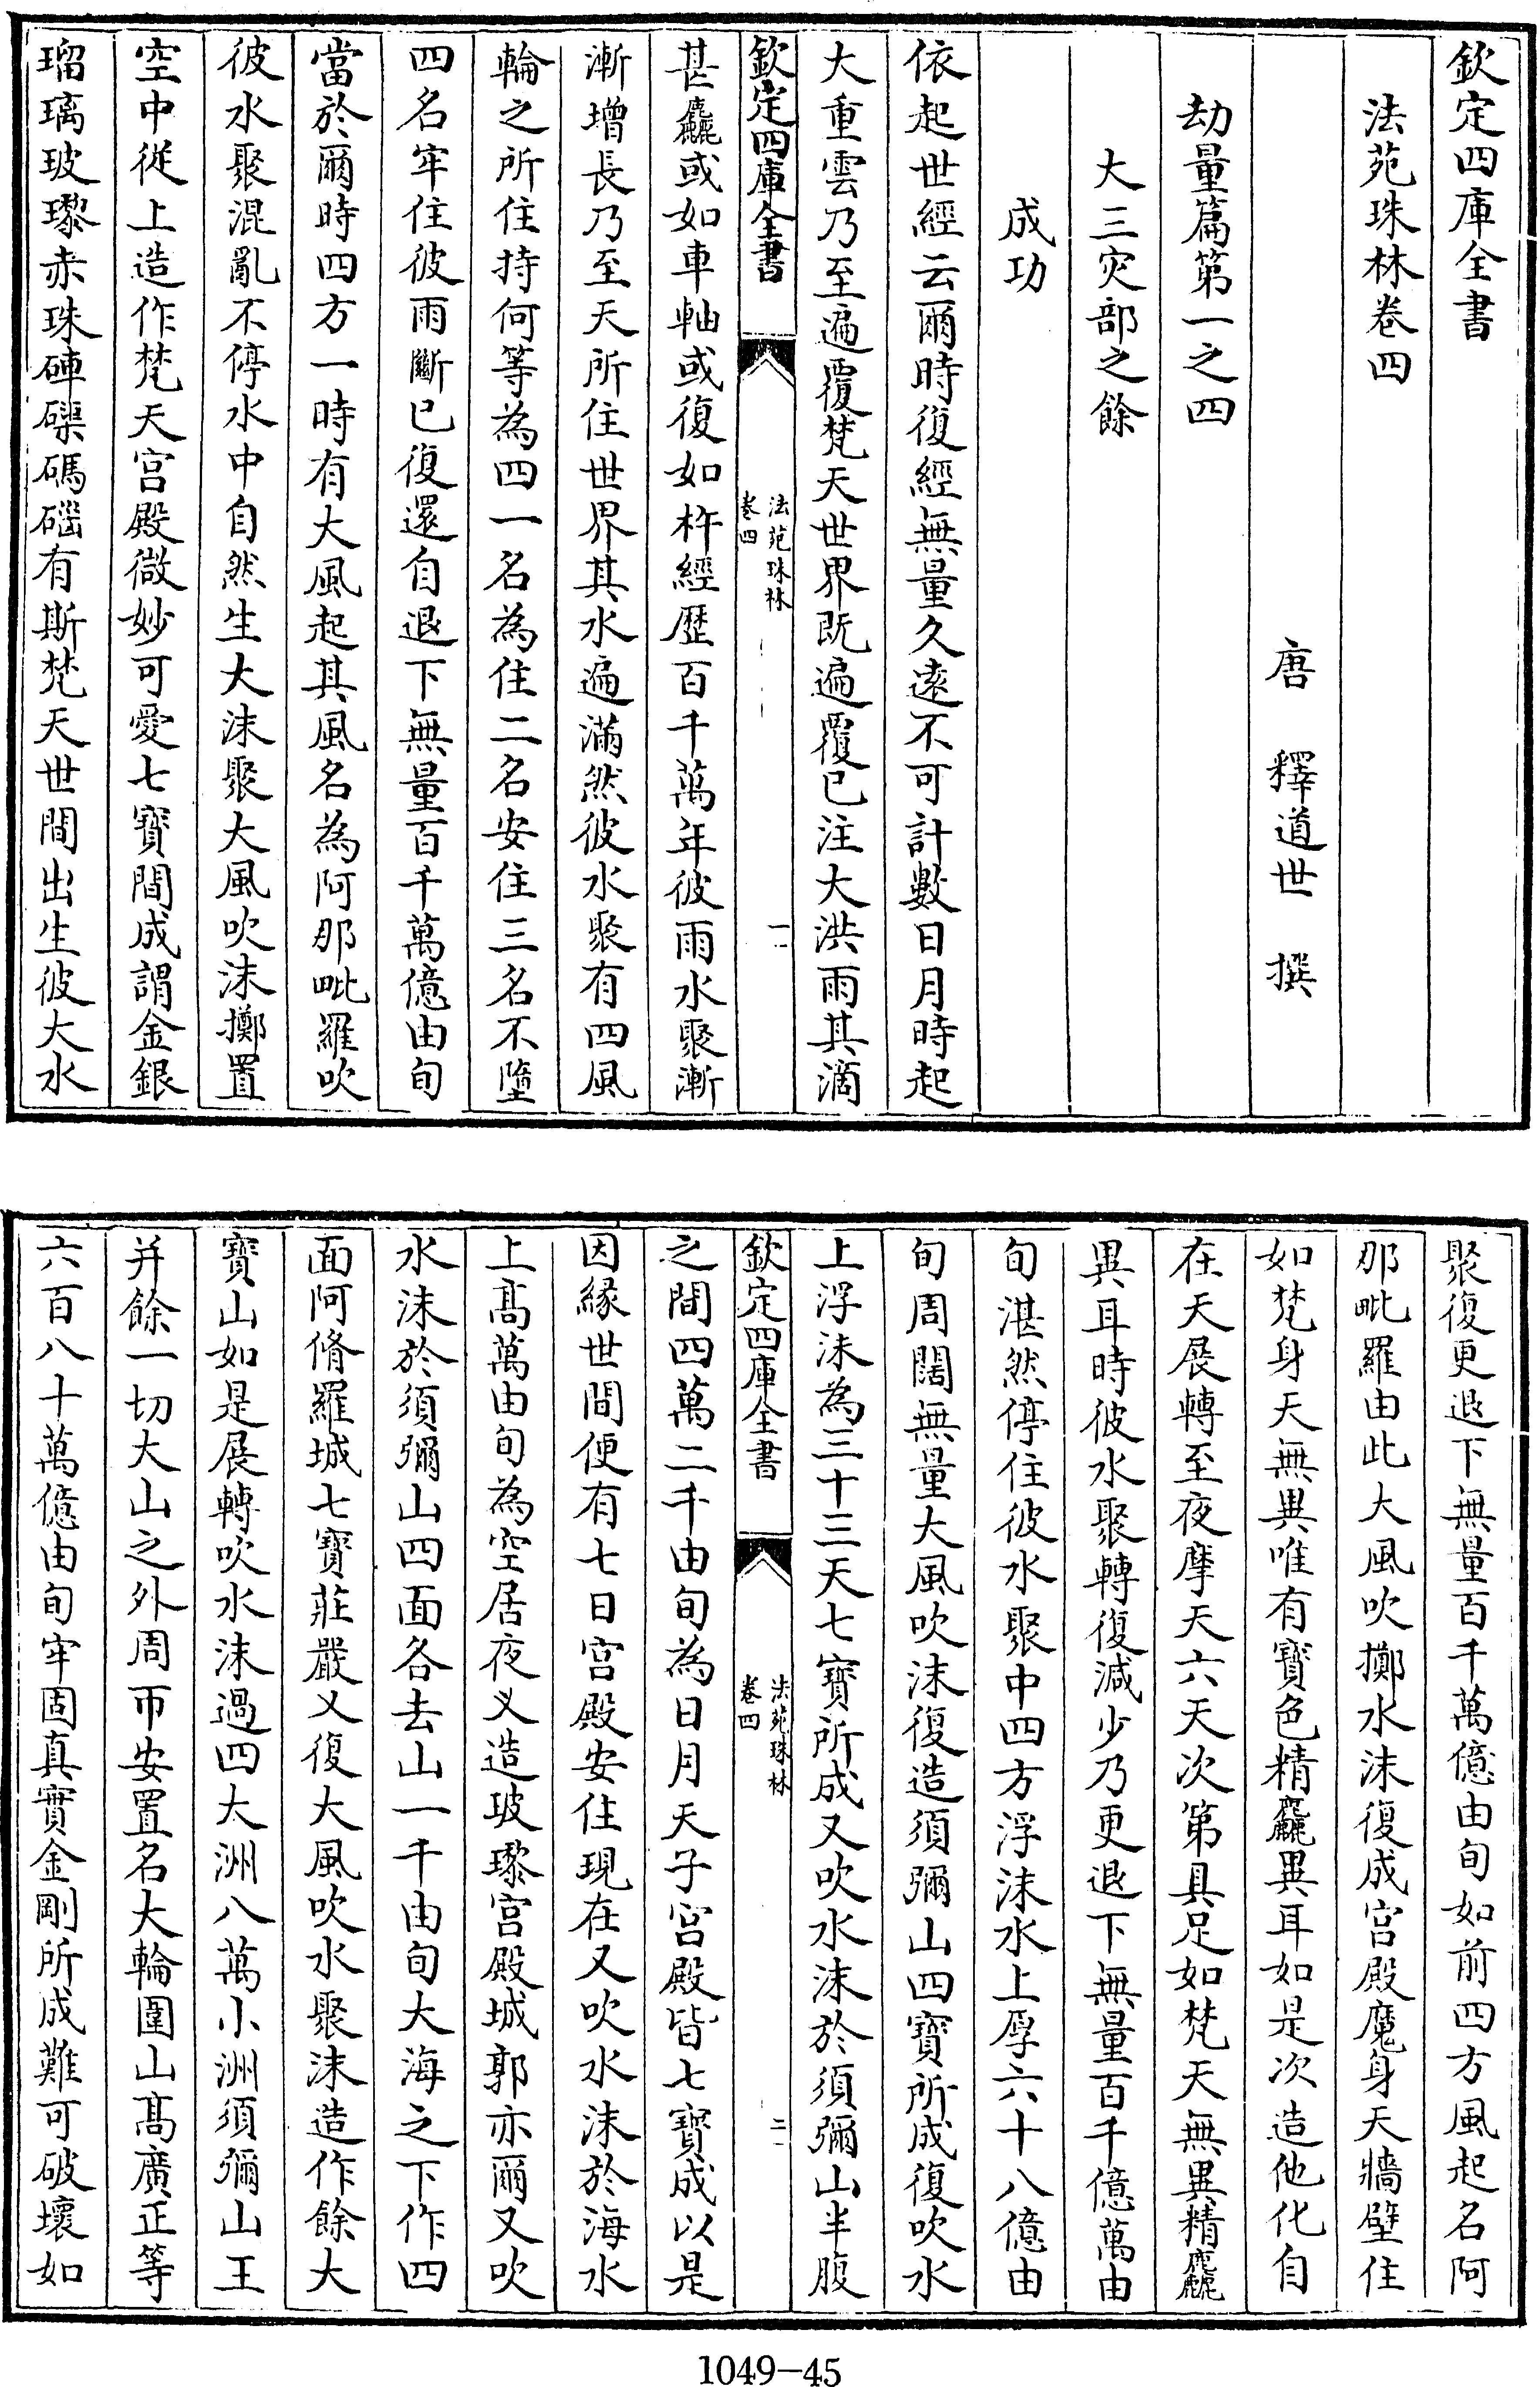 欽定四庫全書
法苑珠林卷四
唐 釋道世 撰
劫量篇第一之四
大三灾部之餘
成功
依起世經云爾時復經無量久遠不可計數日月時起
大重雲乃至遍覆梵天世界既遍覆已注大洪雨其滴
欽定四庫全書
法苑珠林
卷四
一
甚麤或如車軸或復如杵經歴百千萬年彼雨水聚漸
漸增長乃至天所住世界其水遍滿然彼水聚有四風
輪之所住持何等為四一名為住二名安住三名不墮
四名牢住彼雨斷已復還自退下無量百千萬億由旬
當於爾時四方一時有大風起其風名為阿那毗羅吹
彼水聚混亂不停水中自然生大沫聚大風吹沫擲置
空中從上造作梵天宫殿微妙可愛七寶間成謂金銀
瑠璃玻瓈赤珠硨磲碼碯有斯梵天世間出生彼大水
聚復更退下無量百千萬億由旬如前四方風起名阿
那毗羅由此大風吹擲水沫復成宫殿魔身天牆壁住
如梵身天無異唯有寶色精麤異耳如是次造他化自
在天展轉至夜摩天六天次第具足如梵天無異精麤
異耳時彼水聚轉復減少乃更退下無量百千億萬由
旬湛然停住彼水聚中四方浮沫水上厚六十八億由
旬周闊無量大風吹沫復造須彌山四寶所成復吹水
上浮沫為三十三天七寶所成又吹水沫於須彌山半腹
欽定四庫全書
法苑珠林
卷四
二
之間四萬二千由旬為日月天子宫殿皆七寶成以是
因緣世間便有七日宫殿安住現在又吹水沫於海水
上髙萬由旬為空居夜乂造玻瓈宫殿城郭亦爾又吹
水沫於須彌山四面各去山一千由旬大海之下作四
面阿脩羅城七寶莊嚴乂復大風吹水聚沫造作餘大
寶山如是展轉吹水沫過四大洲八萬小洲須彌山王
并餘一切大山之外周帀安置名大輪圍山髙廣正等
六百八十萬億由旬牢固真實金剛所成難可破壞如
1049-45